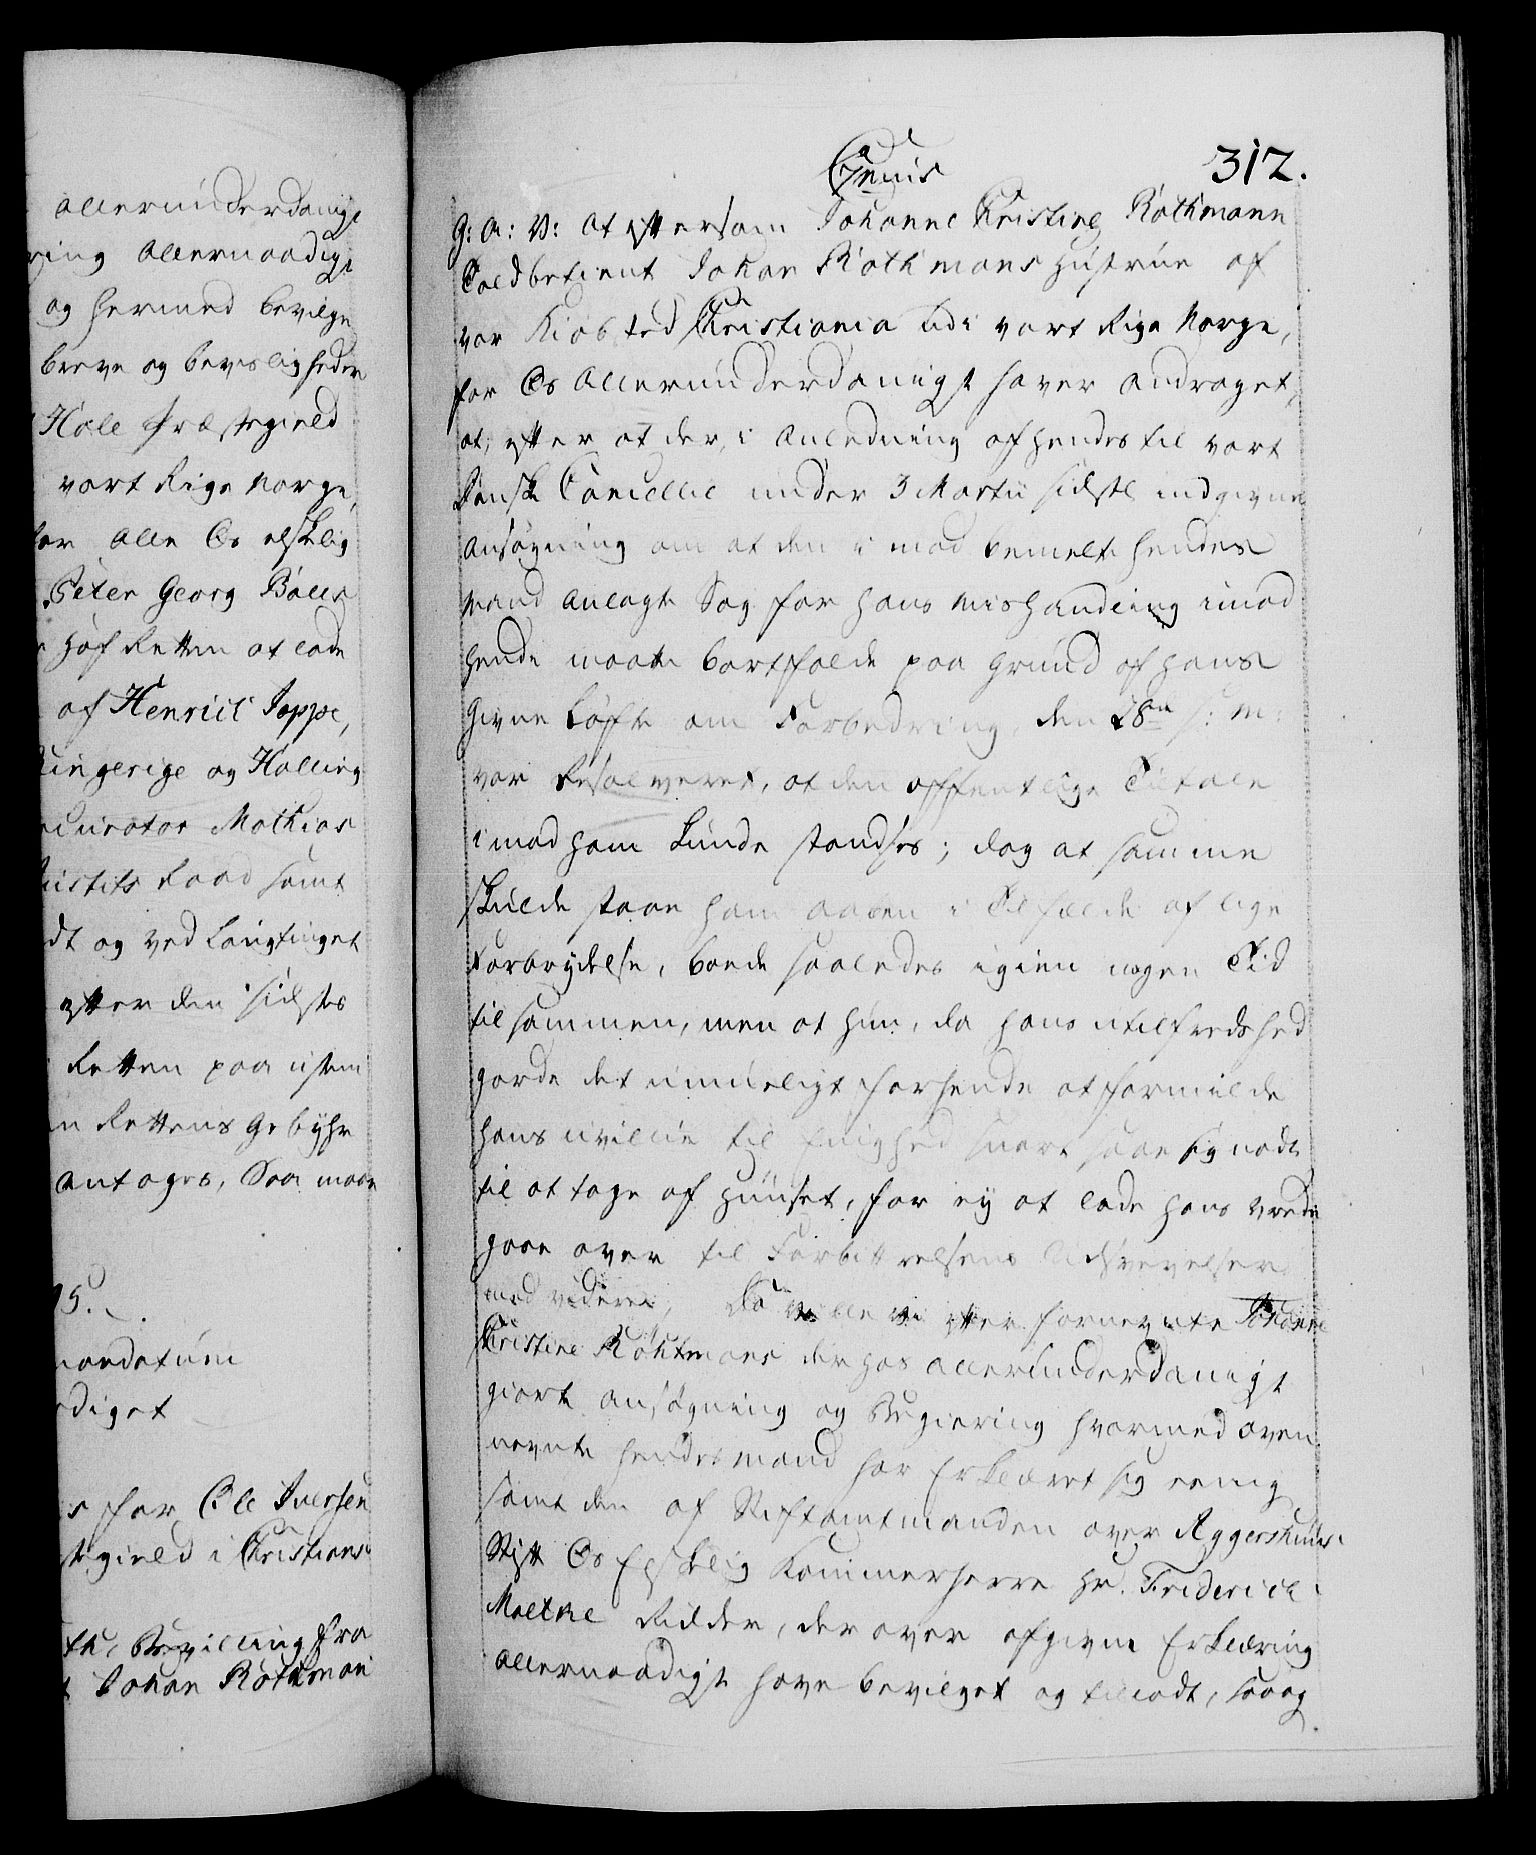 allerunderdanigst
ring allernaadigst
og hermed bevilge
breve og bevisligheder
Hole Præstegield
vort Rige Norge,
for alle Os elskelig
Peter Georg Bøller
Hof Retten at lade
af Henrich Joppe,
Ringerige og Halling
curator Mathias
Justits Raad samt
dt og ved Laugtinget
efter den sidste
Retten paa ustem
n Rettens Gebyhr
antages, Saa maae
95.
mandatum
rdiget
s for Ole Iversen
stegield i Christians
Bevilling fra
t Johan Röthman
312.
Gratis
G: A: V: At eftersom Johanne Christine Röthmann
Toldbetient Johan Röthmans Hustrue af
vor Kiøbsted Christiania udi vort Rige Norge,
for Os allerunderdanigst haver andraget,
at, efter at der, i Anledning af hendes til vort
Danske Cancellie under 3 Martii sidstl. indgivne
Ansøgning om at den i mod bemelte hendes
Mand anlagte Sag for hans Mishandling imod
hende maatte bortfalde paa Grund af hans
givne Løfte om Forbedring, den 28de s: M:
var Resolveret, at den offentlige Tiltale
imod ham kunde standses; dog at samme
skulde staae ham aaben i Tilfælde af lige
Forbrydelse, boede saaledes igien nogen Tid
tilsammen, men at hun, da hans utilfredshed
gorde det umueligt for hende at formilde
hans uvillie til Enighed snart saae sig nødt
til at tage af Huuset, for ey at lade hans Vrede
gaae over til Forbittrelsens Udsvevelser
med videre, Da ville Vi efter fornevnte Johanne
Christine Röhtmans derhos allerunderdanigst
giorte Ansøgning og Begiering hvormed oven
nevnte hendes Mand har Erklæret sig eenig
samt den af Stiftamtmanden over Aggershuus
Stift Os Elskelig Kammerherre Hr. Friderich
Moltke Ridder, derover afgivne Erklæring
allernaadigst have bevilget og tilladt, saa og